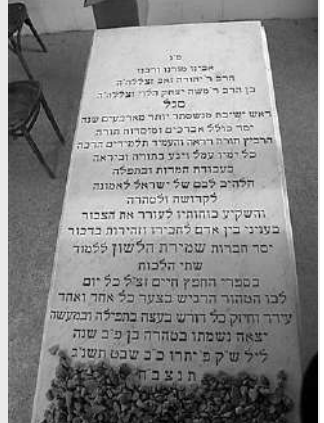 פ"נ
אבינו מורנו ורבנו
הרב ר' יהודה זאב וצללה"ה
בן הרב ר' משה יצחק הלוי וצללה"ה
סגל
ראש ישיבת מנשסתר יותר מארבעים שנה
יסד כולל אברכים ומוסדות תורה
הרביץ תורה ויראה והעמיד תלמידים הרבה
כל ימיו עמל ויגע בתורה וביראה
בעבודת המדות ובתפלה
הלהיב לבם של ישראל לאמונה
לקדושה ולטהרה
והשקיע כוחותיו לעורר את הצבור
בעניני בין אדם לחבירו וזהירות בדבור
יסד חברות שמירת הלשון ללמוד
שתי הלכות
בספרי החפץ חיים זצ"ל כל יום
לבו הטהור הרגיש בצער כל אחד ואחד
עודד וחיזק כל דורש בעצה בתפילה ובמעשה
יצאה נשמתו בטהרה בן פ"ב שנה
ליל ש"ק פ' יתרו כ"ב שבט תשנ"ג
ת נ צ ב " ה